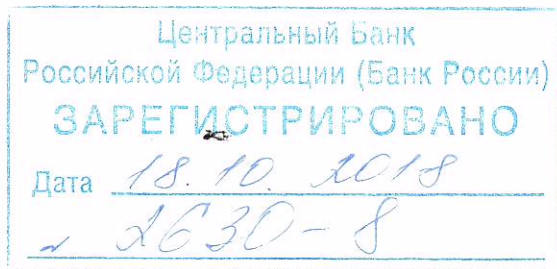 Центральный Банк
Российской Федерации (Банк России)
ЗАРЕГИСТРИРОВАНО
Дата 18.10.2018
№ 2630-8